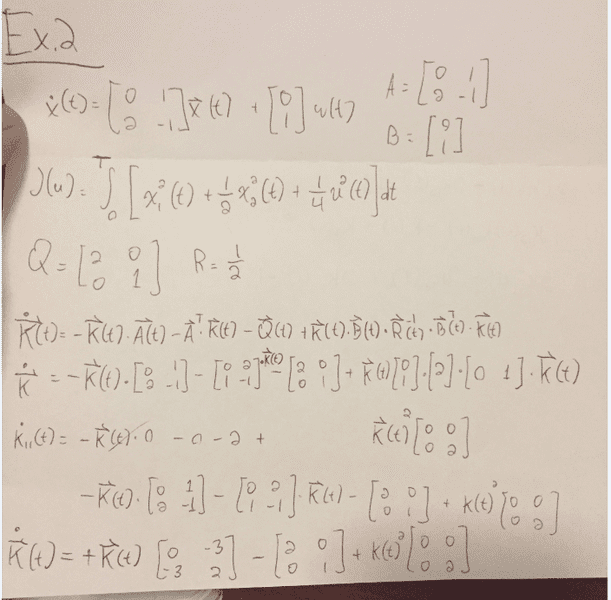 Ex.2
ẋ(t) = [0 1; 2 -1] x⃗(t) + [0; 1] u(t)    A = [0 1; 2 -1]
B = [0; 1]
J(u) = ∫₀ᵀ [x₁²(t) + 1/2 x₂²(t) + 1/4 u²(t)] dt
Q = [2 0; 0 1]    R = 1/2
K̇(t) = -K(t)·A(t) - Aᵀ·K(t) - Q(t) + K(t)·B(t)·R⁻¹(t)·Bᵀ(t)·K(t)
K̇ = -K(t)·[0 1; 2 -1] - [0 2; 1 -1]·K(t) - [2 0; 0 1] + K(t)[0; 1]·[2]·[0 1]·K(t)
k̇₁₁(t) = -K(t)·0 - 0 - 2 +    K(t)²[0 0; 0 2]
-K(t)·[0 1; 2 -1] - [0 2; 1 -1]·K(t) - [2 0; 0 1] + k(t)²[0 0; 0 2]
K̇(t) = +K(t) [0 -3; -3 2] - [2 0; 0 1] + k(t)²[0 0; 0 2]